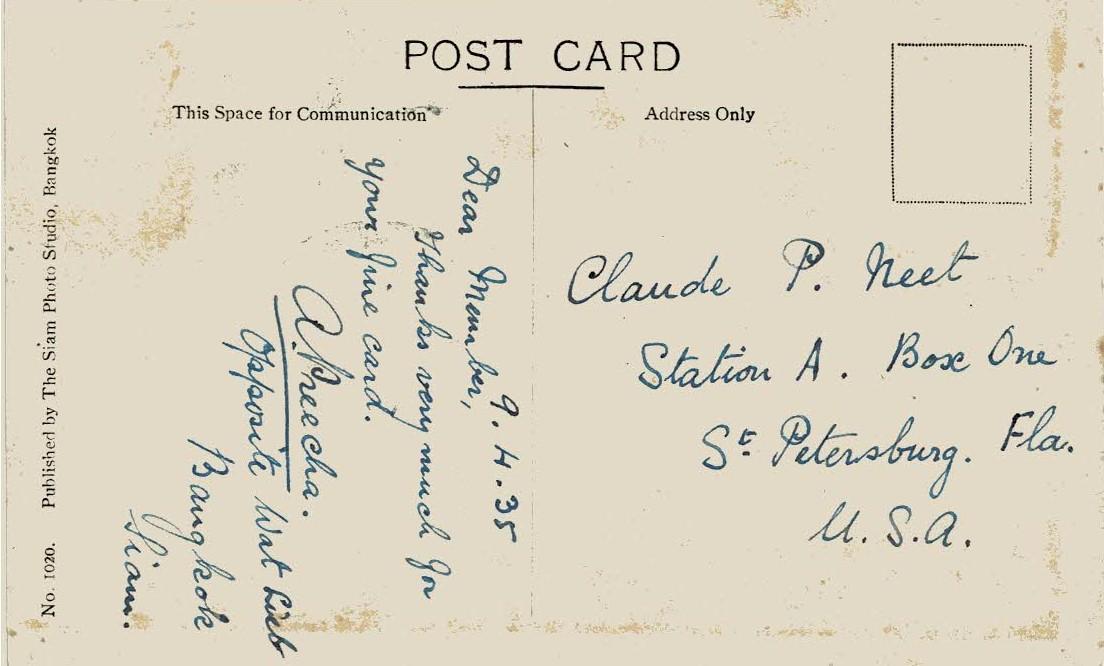 POST CARD
This Space for Communication
Address Only
9.4.35
Dear Member,
Thanks very much for
your fine card.
A. Preecha.
Opposite Wat Lieb
Bangkok
Siam.
Claude P. Neet
Station A. Box One
St Petersburg. Fla.
U.S.A.
No. 1020. Published by The Siam Photo Studio, Bangkok